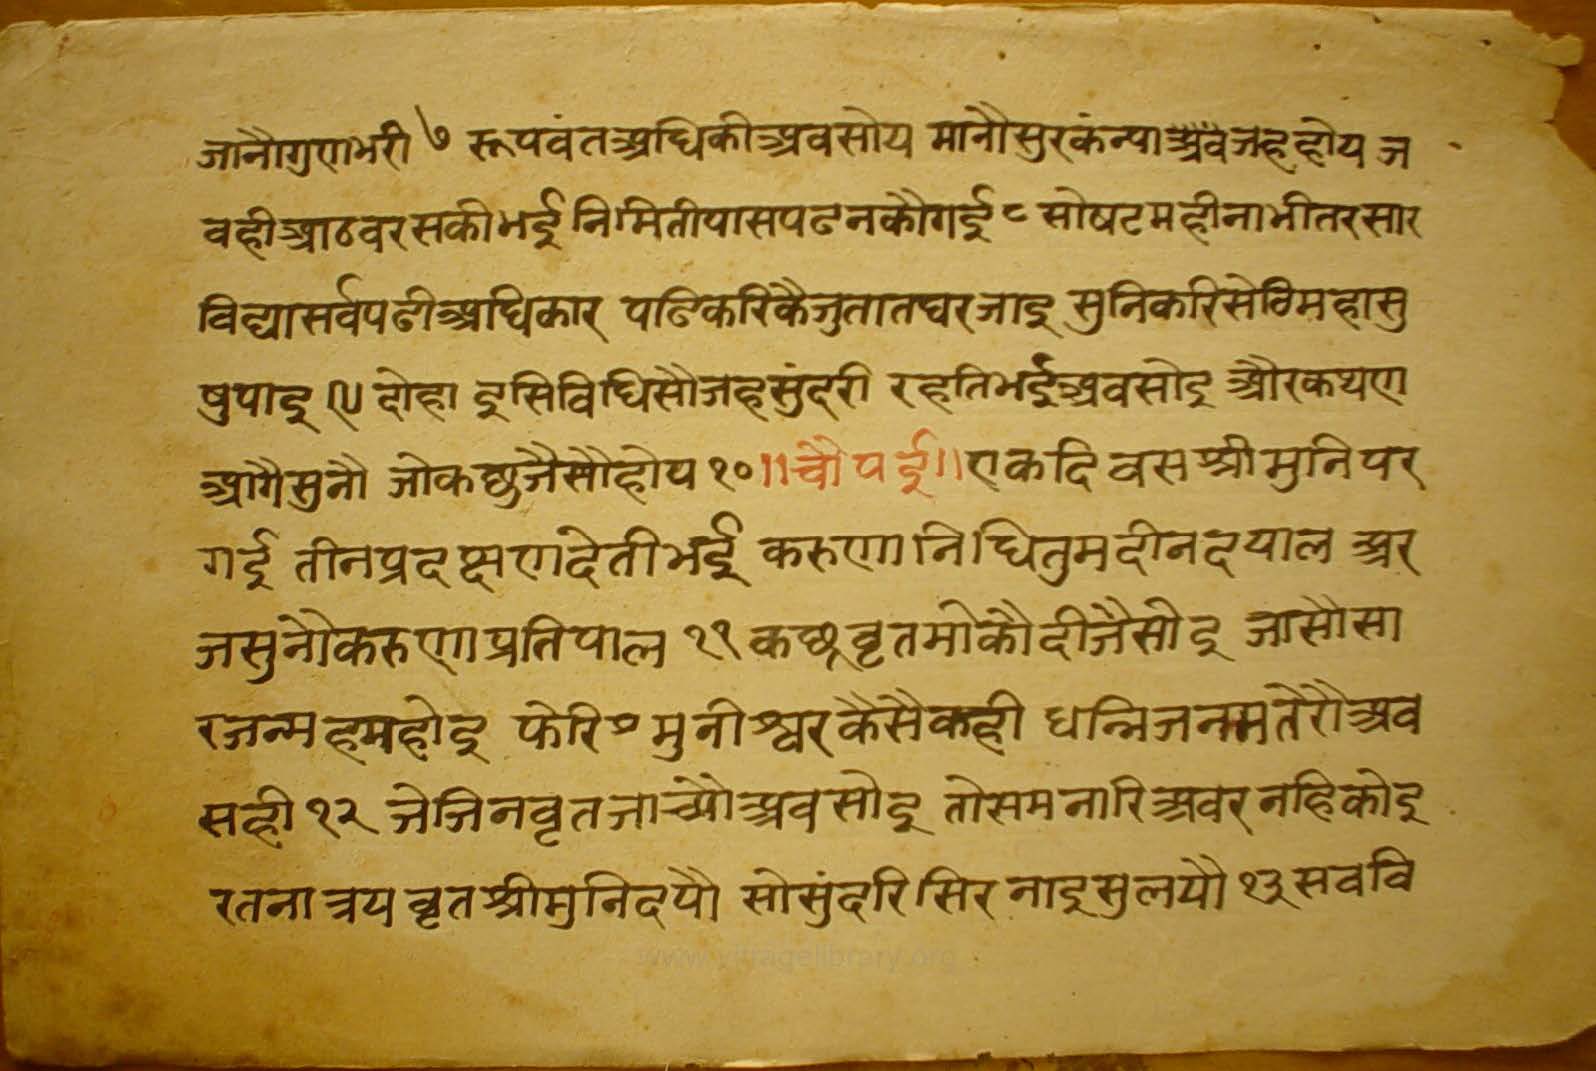 जानौगुणभरी ७ रूपवंतअधिकीअवसोय मानौसुरकंन्याअवजहहोय ज
वहीआठवरसकीभई निमितीपासपढनकौगई ८ सोषटमहीनाभीतरसार
विद्यासर्वपढीअधिकार पढिकरिकैजुतातघरजाइ सुनिकरिसेठिमहासु
षुपाइ ९ दोहा इसिविधिसौजहसुंदरी रहतिभईअवसोइ औरकथण
आगैसुनौ जोकछुजैसौहोय १० ॥चौपई॥ एकदिवसश्रीमुनिपर
गई तीनप्रदक्षणदेतीभई करुणानिधितुमदीनदयाल अर
जसुनौकरुणाप्रतिपाल ११ कछूवृतमोकौदीजैसोइ जासौसा
रजन्महमहोइ फेरि मुनीश्वरकैसैकही धन्निजनमतेरौअव
सही १२ जेजिनवृतजाच्यौअवसोइ तोसमनारिअवरनहिकोइ
रतनात्रयवृतश्रीमुनिदयौ सोसुंदरिसिरनाइसुलयौ १३ सववि
www.vitragelibrary.org